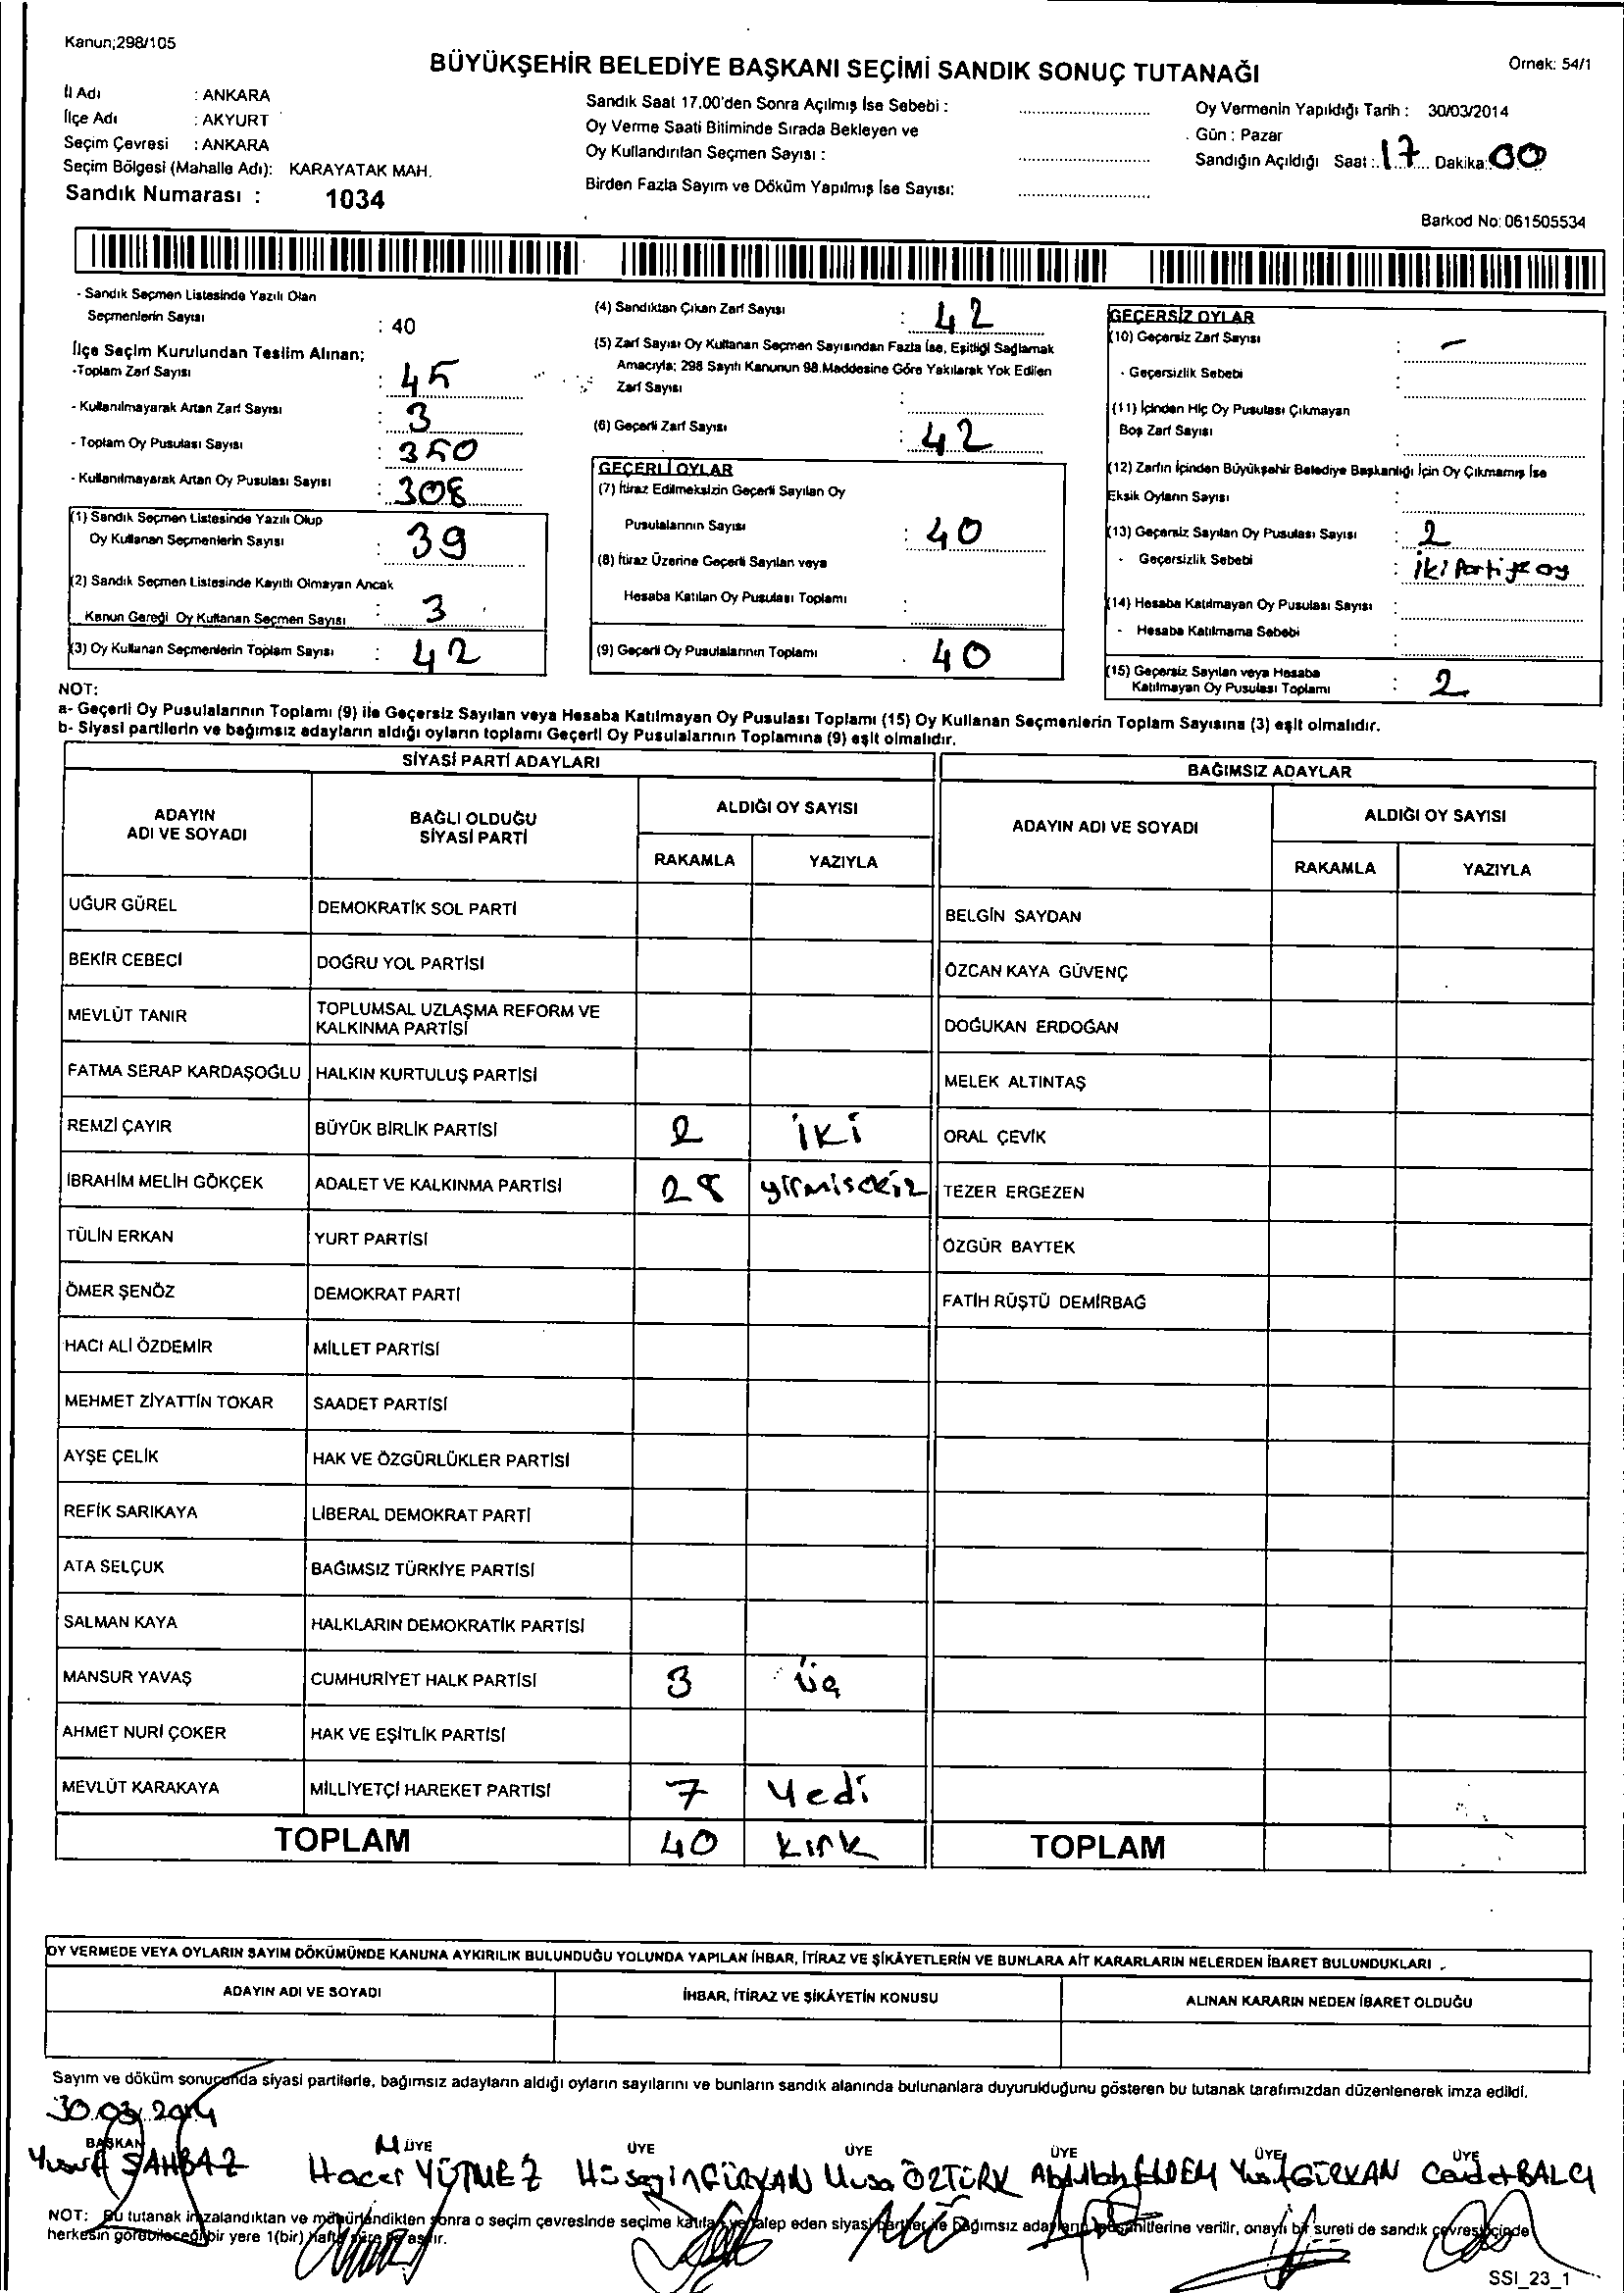 Kanun;298/105
BÜYÜKŞEHİR BELEDİYE BAŞKANI SEÇİMİ SANDIK SONUÇ TUTANAĞI
Örnek: 54/1
İl Adı : ANKARA
İlçe Adı : AKYURT
Seçim Çevresi : ANKARA
Seçim Bölgesi (Mahalle Adı): KARAYATAK MAH.
Sandık Numarası : 1034
Sandık Saat 17.00'den Sonra Açılmış İse Sebebi :
Oy Verme Saati Bitiminde Sırada Bekleyen ve
Oy Kullandırılan Seçmen Sayısı :
Birden Fazla Sayım ve Döküm Yapılmış İse Sayısı:
Oy Vermenin Yapıldığı Tarih : 30/03/2014
Gün : Pazar
Sandığın Açıldığı Saat : 17 Dakika: 00
Barkod No: 061505534
- Sandık Seçmen Listesinde Yazılı Olan
Seçmenlerin Sayısı : 40
İlçe Seçim Kurulundan Teslim Alınan;
-Toplam Zarf Sayısı : 45
- Kullanılmayarak Artan Zarf Sayısı : 3
- Toplam Oy Pusulası Sayısı : 350
- Kullanılmayarak Artan Oy Pusulası Sayısı : 308
(1) Sandık Seçmen Listesinde Yazılı Olup
Oy Kullanan Seçmenlerin Sayısı : 39
(2) Sandık Seçmen Listesinde Kayıtlı Olmayan Ancak
Kanun Gereği Oy Kullanan Seçmen Sayısı : 3
(3) Oy Kullanan Seçmenlerin Toplam Sayısı : 42
(4) Sandıktan Çıkan Zarf Sayısı : 42
(5) Zarf Sayısı Oy Kullanan Seçmen Sayısından Fazla İse, Eşitliği Sağlamak
Amacıyla; 298 Sayılı Kanunun 98.Maddesine Göre Yakılarak Yok Edilen
Zarf Sayısı :
(6) Geçerli Zarf Sayısı : 42
GEÇERLİ OYLAR
(7) İtiraz Edilmeksizin Geçerli Sayılan Oy
Pusulalarının Sayısı : 40
(8) İtiraz Üzerine Geçerli Sayılan veya
Hesaba Katılan Oy Pusulası Toplamı :
(9) Geçerli Oy Pusulalarının Toplamı : 40
GEÇERSİZ OYLAR
(10) Geçersiz Zarf Sayısı : -
- Geçersizlik Sebebi :
(11) İçinden Hiç Oy Pusulası Çıkmayan
Boş Zarf Sayısı :
(12) Zarfın İçinden Büyükşehir Belediye Başkanlığı İçin Oy Çıkmamış İse
Eksik Oyların Sayısı :
(13) Geçersiz Sayılan Oy Pusulası Sayısı : 2
- Geçersizlik Sebebi : iki Partiye oy
(14) Hesaba Katılmayan Oy Pusulası Sayısı :
- Hesaba Katılmama Sebebi :
(15) Geçersiz Sayılan veya Hesaba
Katılmayan Oy Pusulası Toplamı : 2
NOT:
a- Geçerli Oy Pusulalarının Toplamı (9) ile Geçersiz Sayılan veya Hesaba Katılmayan Oy Pusulası Toplamı (15) Oy Kullanan Seçmenlerin Toplam Sayısına (3) eşit olmalıdır.
b- Siyasi partilerin ve bağımsız adayların aldığı oyların toplamı Geçerli Oy Pusulalarının Toplamına (9) eşit olmalıdır.
SİYASİ PARTİ ADAYLARI
BAĞIMSIZ ADAYLAR
ADAYIN ADI VE SOYADI
BAĞLI OLDUĞU SİYASİ PARTİ
ALDIĞI OY SAYISI
RAKAMLA YAZIYLA
ADAYIN ADI VE SOYADI
ALDIĞI OY SAYISI
RAKAMLA YAZIYLA
UĞUR GÜREL DEMOKRATİK SOL PARTİ BELGİN SAYDAN
BEKİR CEBECİ DOĞRU YOL PARTİSİ ÖZCAN KAYA GÜVENÇ
MEVLÜT TANIR TOPLUMSAL UZLAŞMA REFORM VE KALKINMA PARTİSİ DOĞUKAN ERDOĞAN
FATMA SERAP KARDAŞOĞLU HALKIN KURTULUŞ PARTİSİ MELEK ALTINTAŞ
REMZİ ÇAYIR BÜYÜK BİRLİK PARTİSİ 2 iki ORAL ÇEVİK
İBRAHİM MELİH GÖKÇEK ADALET VE KALKINMA PARTİSİ 28 yirmisekiz TEZER ERGEZEN
TÜLİN ERKAN YURT PARTİSİ ÖZGÜR BAYTEK
ÖMER ŞENÖZ DEMOKRAT PARTİ FATİH RÜŞTÜ DEMİRBAĞ
HACI ALİ ÖZDEMİR MİLLET PARTİSİ
MEHMET ZİYATTİN TOKAR SAADET PARTİSİ
AYŞE ÇELİK HAK VE ÖZGÜRLÜKLER PARTİSİ
REFİK SARIKAYA LİBERAL DEMOKRAT PARTİ
ATA SELÇUK BAĞIMSIZ TÜRKİYE PARTİSİ
SALMAN KAYA HALKLARIN DEMOKRATİK PARTİSİ
MANSUR YAVAŞ CUMHURİYET HALK PARTİSİ 3 üç
AHMET NURİ ÇOKER HAK VE EŞİTLİK PARTİSİ
MEVLÜT KARAKAYA MİLLİYETÇİ HAREKET PARTİSİ 7 Yedi
TOPLAM 40 kırk TOPLAM
OY VERMEDE VEYA OYLARIN SAYIM DÖKÜMÜNDE KANUNA AYKIRILIK BULUNDUĞU YOLUNDA YAPILAN İHBAR, İTİRAZ VE ŞİKÂYETLERİN VE BUNLARA AİT KARARLARIN NELERDEN İBARET BULUNDUKLARI
ADAYIN ADI VE SOYADI İHBAR, İTİRAZ VE ŞİKÂYETİN KONUSU ALINAN KARARIN NEDEN İBARET OLDUĞU
Sayım ve döküm sonucunda siyasi partilerle, bağımsız adayların aldığı oyların sayılarını ve bunların sandık alanında bulunanlara duyurulduğunu gösteren bu tutanak tarafımızdan düzenlenerek imza edildi.
30.03.2014
BAŞKAN ÜYE ÜYE ÜYE ÜYE ÜYE ÜYE
Yusuf ŞAHBAZ Hacer YÜTMEZ Hüseyin GÜRKAN Musa ÖZTÜRK Abdullah ELDEM Yusuf GÜRKAN Cevdet BALCI
NOT: Bu tutanak imzalandıktan ve mühürlendikten sonra o seçim çevresinde seçime katılan ve talep eden siyasi partiler ile bağımsız adayların müşahitlerine verilir, onaylı bir sureti de sandık çevresi içinde
herkesin görebileceği bir yere 1(bir) hafta süre ile asılır.
SSI_23_1